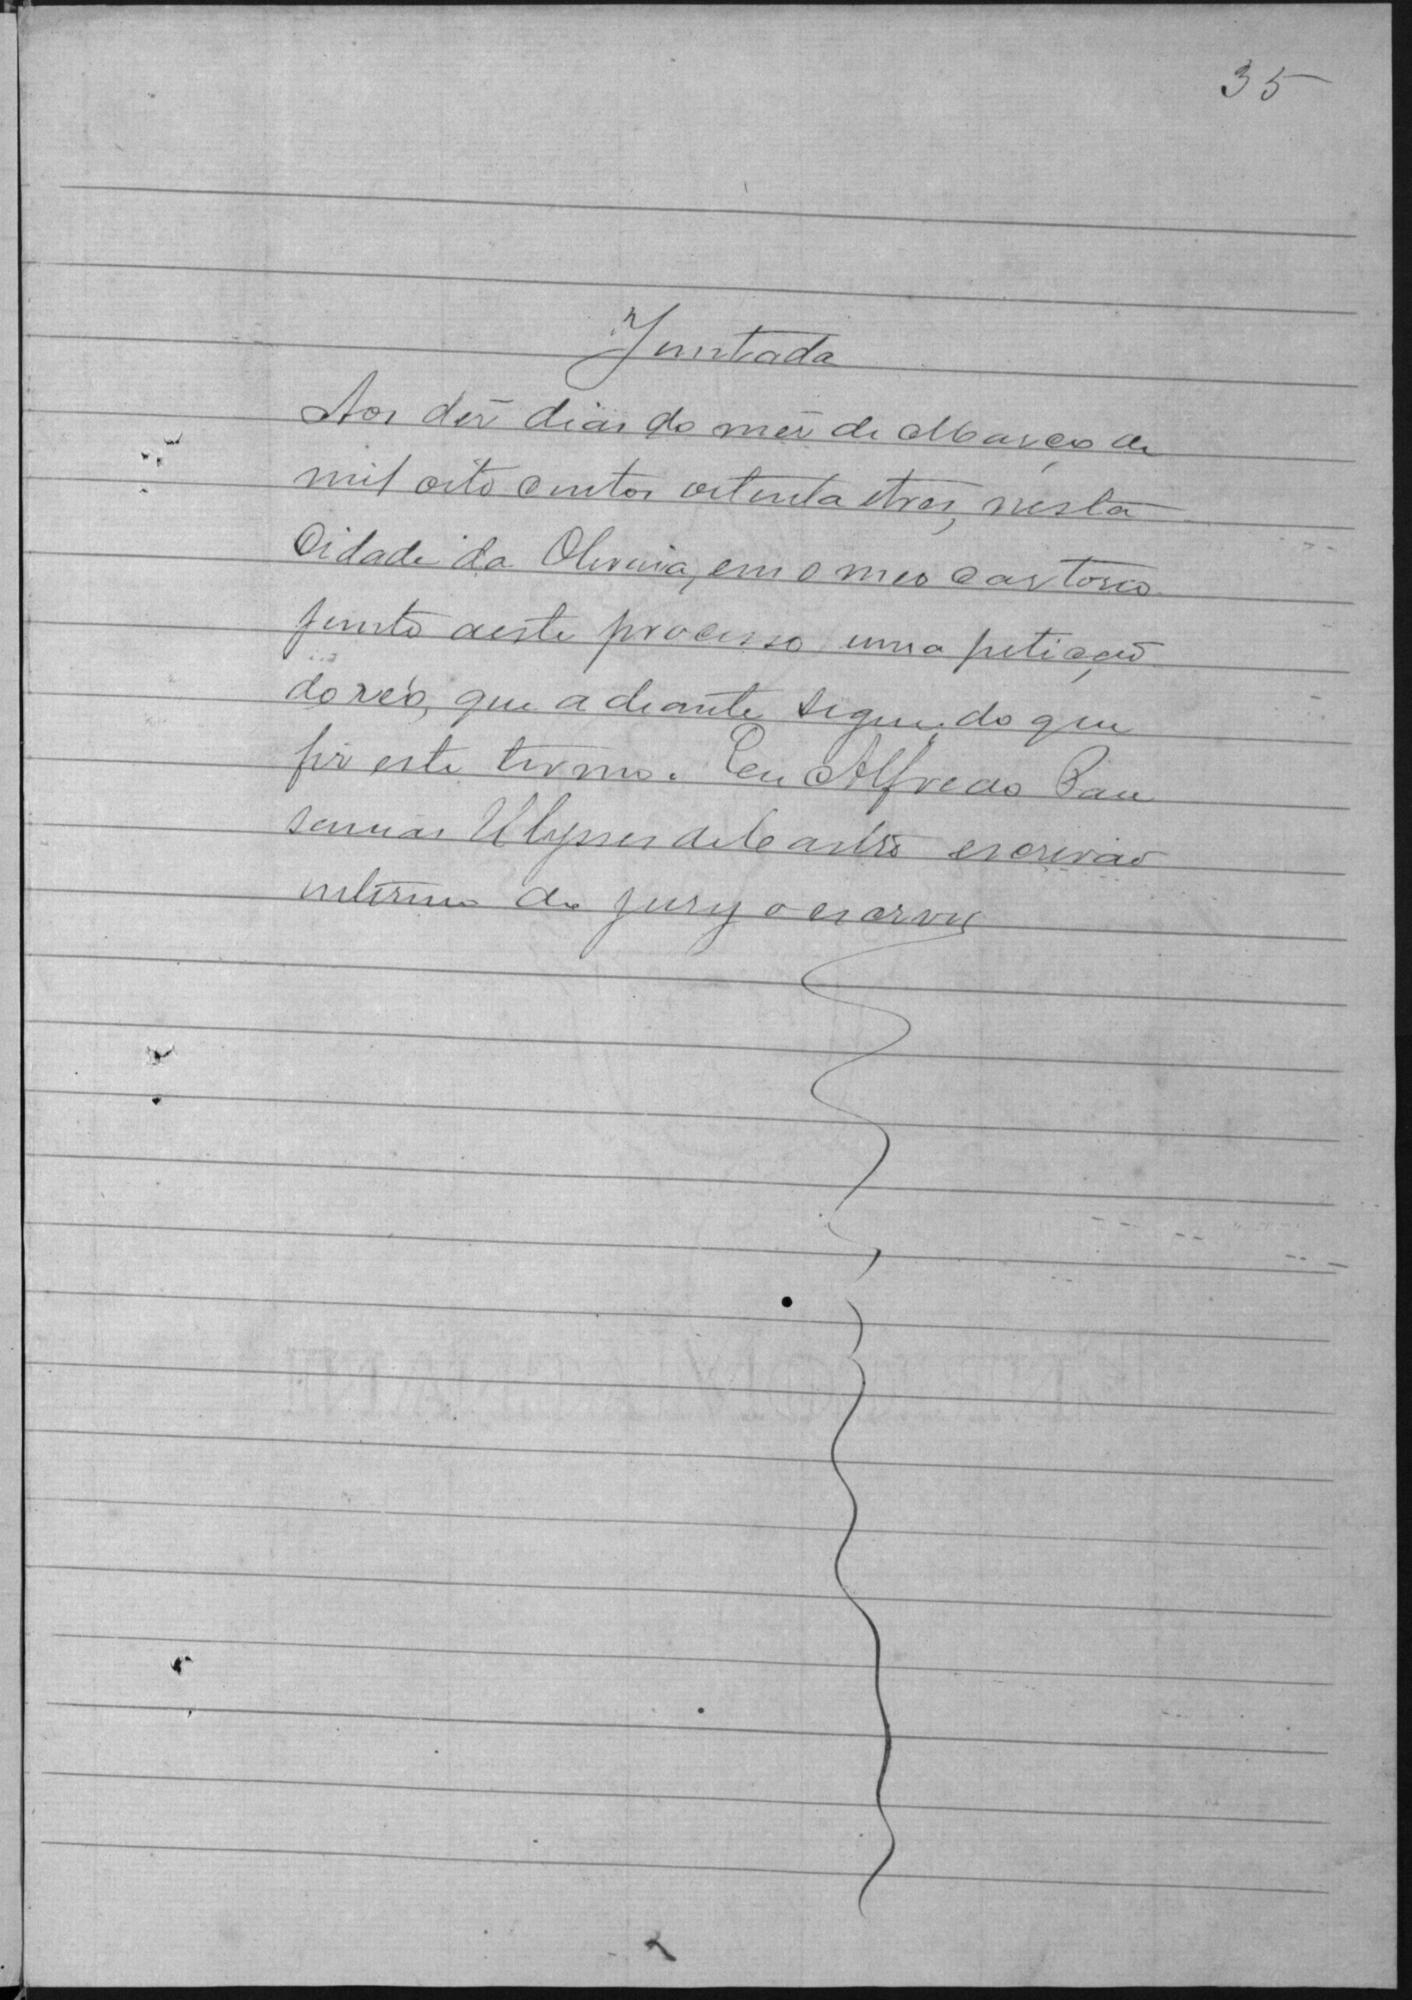 35
Juntada
Aos dez dias do mez de Março de
mil oito centos oitenta etres, nesta
Cidade da Oliveira, em o meo cartorio
junto aeste processo uma petição
do réo, que adiante segue, do que
fiz este termo. Eu Alfredo Pau
sanias Ulysses de Castro escrivão
interino do jury o escrevi